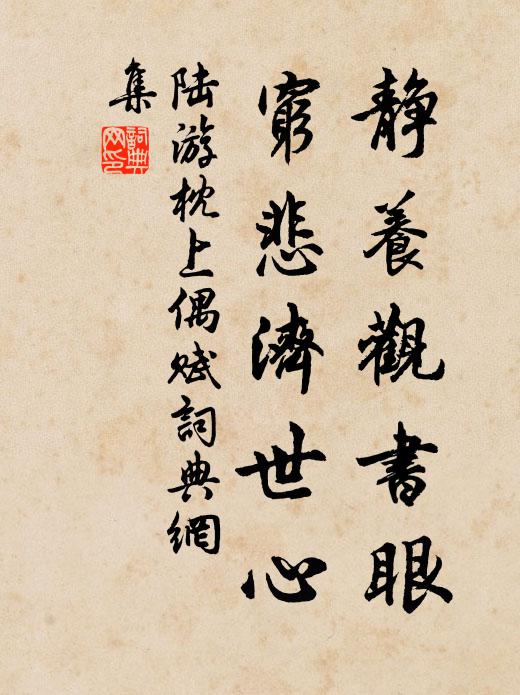 静養觀書眼
窮悲濟世心
陆游枕上偶赋詞典網
集
詞典
网印